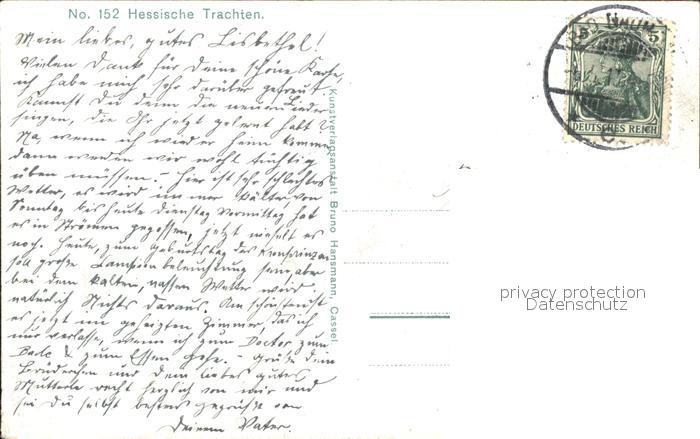 No. 152 Hessische Trachten.
Mein liebes, gutes Lisbethel!
Vielen Dank für Deine schöne Karte,
ich habe mich sehr darüber gefreut.
Kannst Du denn die neuen Lieder
singen, die Ihr jetzt gelernt habt?
Na, wenn ich wieder heim komme
dann werden wir wohl tüchtig
üben müssen. – Hier ist sehr schlechtes
Wetter, es wird immer kälter von
Sonntag bis heute Dienstag Vormittag hat
es in Strömen gegossen, jetzt nieselt es
noch. Heute, zum Geburtstag des Kronprinzen
soll große Lampionbeleuchtung sein, aber
bei dem kalten, nassen Wetter wird
natürlich Nichts daraus. Am schönsten ist
es jetzt im geheizten Zimmer, das ich
nur verlasse, wenn ich zum Doctor zum
Bade & zum Essen gehe. – Grüße dein
Brüderchen und dem liebes gutes
Mutterle recht herzlich von mir und
sei Du selbst bestens gegrüßt von
Deinem Vater.
Kunstverlagsanstalt Bruno Hansmann, Cassel.
5
DEUTSCHES REICH
privacy protection
Datenschutz